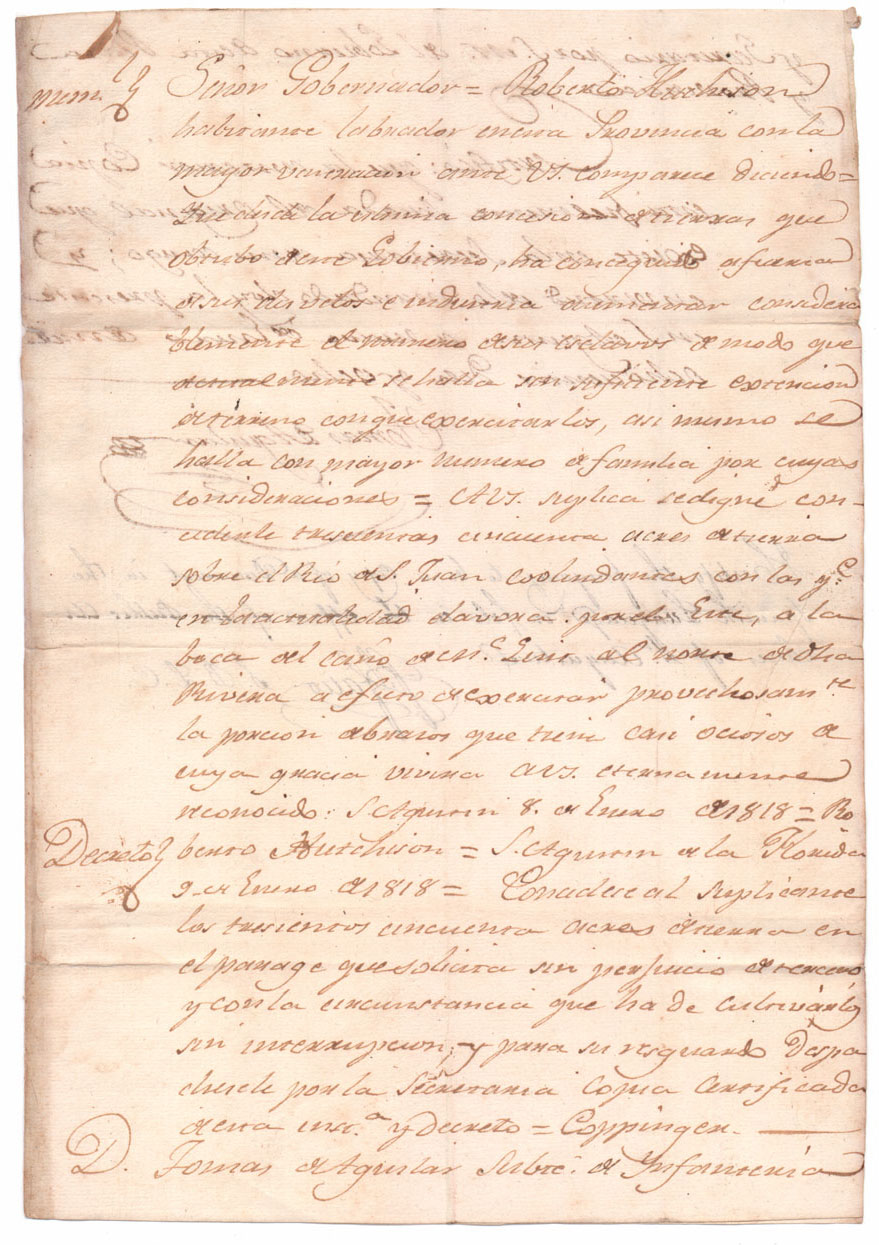 mem.l Señor Gobernador = Roberto Hutchison
habitante labrador en esta Provincia con la
mayor veneracion ante VS. comparece diciendo =
la ultima concesion de tierras que
obtubo de este Gobierno, ha conseguido a fuerza
de sus desvelos e industria aumentar considera
blemente el numero de sus esclavos de modo que
actualmente se halla sin suficiente extencion
de terreno con que exercitarlos, asi mismo se
halla con mayor numero de familia por cuyas
consideraciones = A VS. suplica se digne con-
cederle trescientas cincuenta acres de tierra
sobre el Rio de S. Juan colindantes con las q.e
en la actualidad elavora por el Este, a la
boca del caño de al norte de dha
Rivera a efecto de exercitar provechosam.te
la porcion de brasos que tiene casi ociosos de
cuya gracia vivira a VS. eternamente
reconocido: S. Agustin 8. de Enero de 1818 = Ro
Decreto berto Hutchison = S. Agustin de la Florida
9. de Enero de 1818 = Concedese al suplicante
los tresientos cincuenta acres de tierra en
el parage que solicita sin perjuicio de tercero
y con la circunstancia que ha de cultivarlos
sin interrupcion, y para su resguardo Despa
chesele por la Secretaria Copia Certificada
de esta inst.a y Decreto = Coppinger.
D. Tomas de Aguilar Subte. de Infanteria